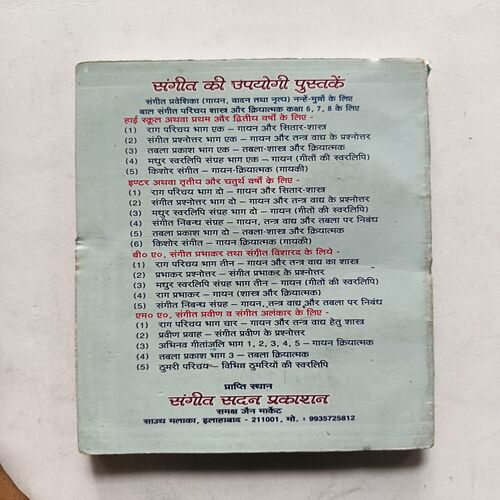 संगीत की उपयोगी पुस्तकें
संगीत प्रवेशिका (गायन, वादन तथा नृत्य) नन्हें-मुन्नों के लिए
बाल संगीत परिचय शास्त्र और क्रियात्मक कक्षा 6, 7, 8 के लिए
हाई स्कूल अथवा प्रथम और द्वितीय वर्षों के लिए -
(1) राग परिचय भाग एक – गायन और सितार-शास्त्र
(2) संगीत प्रश्नोत्तर भाग एक – गायन और तन्त्र वाद्य के प्रश्नोत्तर
(3) तबला प्रकाश भाग एक – तबला-शास्त्र और क्रियात्मक
(4) मधुर स्वरलिपि संग्रह भाग एक – गायन (गीतों की स्वरलिपि)
(5) किशोर संगीत – गायन-क्रियात्मक (गायकी)
इण्टर अथवा तृतीय और चतुर्थ वर्षों के लिए -
(1) राग परिचय भाग दो – गायन और सितार-शास्त्र
(2) संगीत प्रश्नोत्तर भाग दो – गायन और तन्त्र वाद्य के प्रश्नोत्तर
(3) मधुर स्वरलिपि संग्रह भाग दो – गायन (गीतों की स्वरलिपि)
(4) संगीत निबन्ध संग्रह – गायन, तन्त्र वाद्य और तबला पर निबंध
(5) तबला प्रकाश भाग दो – तबला-शास्त्र और क्रियात्मक
(6) किशोर संगीत – गायन क्रियात्मक (गायकी)
बी० ए०, संगीत प्रभाकर तथा संगीत विशारद के लिये -
(1) राग परिचय भाग तीन – गायन और तन्त्र वाद्य का शास्त्र
(2) प्रभाकर प्रश्नोत्तर – संगीत प्रभाकर के प्रश्नोत्तर
(3) मधुर स्वरलिपि संग्रह भाग तीन – गायन (गीतों की स्वरलिपि)
(4) राग प्रभाकर – गायन (शास्त्र और क्रियात्मक)
(5) संगीत निबन्ध संग्रह – गायन, तन्त्र वाद्य और तबला पर निबंध
एम० ए०, संगीत प्रवीण व संगीत अलंकार के लिए -
(1) राग परिचय भाग चार – गायन और तन्त्र वाद्य हेतु शास्त्र
(2) प्रवीण प्रवाह – संगीत प्रवीण के प्रश्नोत्तर
(3) अभिनव गीतांजलि भाग 1, 2, 3, 4, 5 – गायन क्रियात्मक
(4) तबला प्रकाश भाग 3 – तबला क्रियात्मक
(5) ठुमरी परिचय – विभिन्न ठुमरियों की स्वरलिपि
प्राप्ति स्थान
संगीत सदन प्रकाशन
समक्ष जैन मार्केट
साउथ मलाका, इलाहाबाद - 211001, मो. : 9935725812